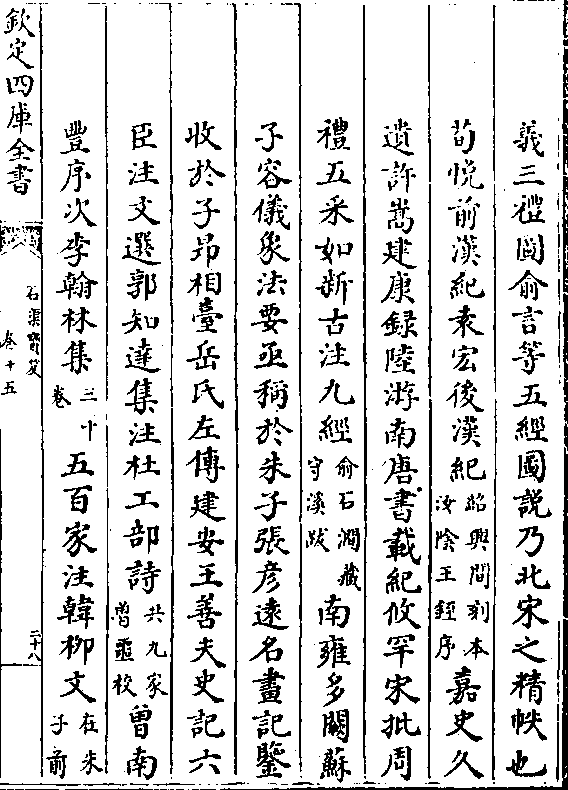 義三禮圖俞言等五經圖說乃北宋之精帙也
荀悅前漢紀袁宏後漢紀紹興間刻本汝陰王銍序嘉史久
遺許嵩建康録陸游南唐書載紀攸罕宋批周
禮五采如新古注九經俞石澗藏守溪跋南雍多闕蘇
子容儀象法要亟稱於朱子張彦遠名畫記鑒
收於子昂相臺岳氏左傳建安王善夫史記六
臣注文選郭知達集注杜工部詩共九家曾噩校曾南
豐序次李翰林集三十卷五百家注韓柳文在朱子前
欽定四庫全書
石渠寶笈
卷十五
二十八